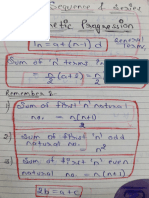 Sequence & Series
Arithmetic Progression
Tn = a+(n-1) d General Term
Sum of 'n' terms
= n/2 (a+l) = n/2
Remember :-
1) Sum of first 'n' natural
no. = n(n+1)/2
2) Sum of first 'n' odd
natural no. =
n²
3) Sum of first 'n' even
natural no = n(n+1)
2b = a+c